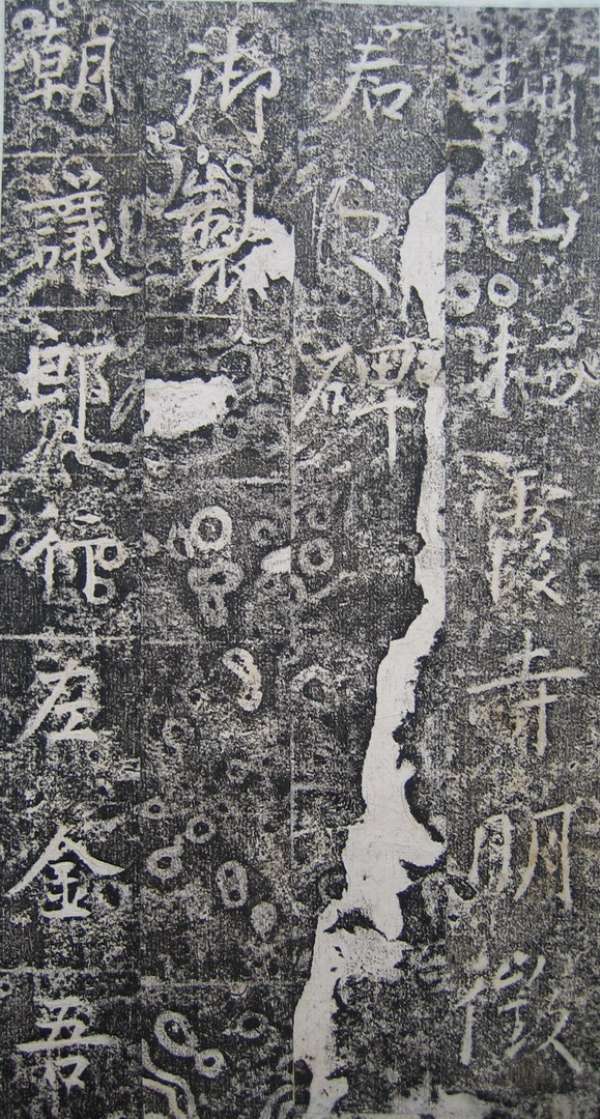 山霞寺明徵
君之碑
御製
朝議郎行左金吾